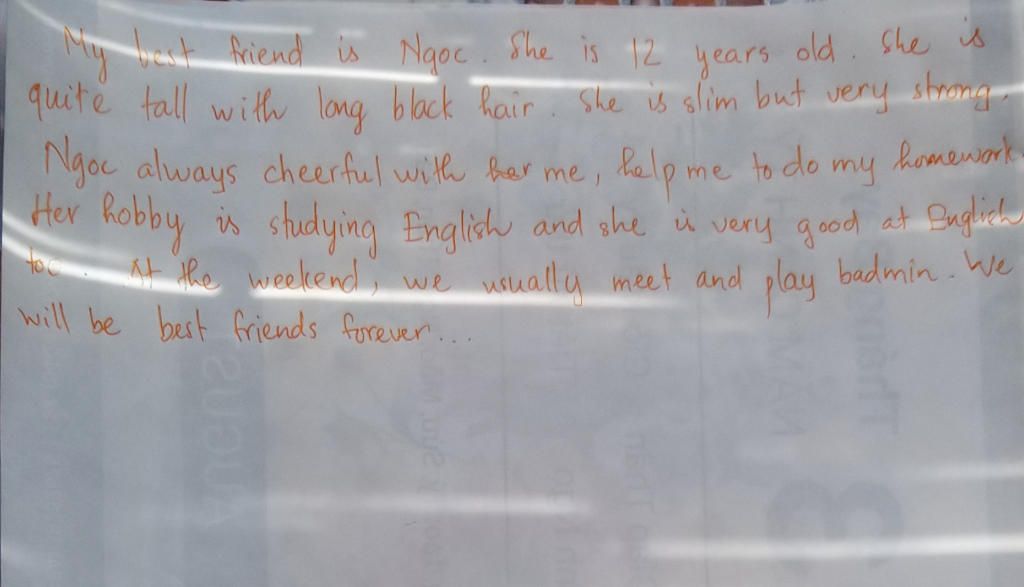 My best friend is Ngoc. She is 12 years old. She is
quite tall with long black hair. She is slim but very strong.
Ngoc always cheerful with her me, help me to do my homework.
Her hobby is studying English and she is very good at English
too. At the weekend, we usually meet and play badmin. We
will be best friends forever...